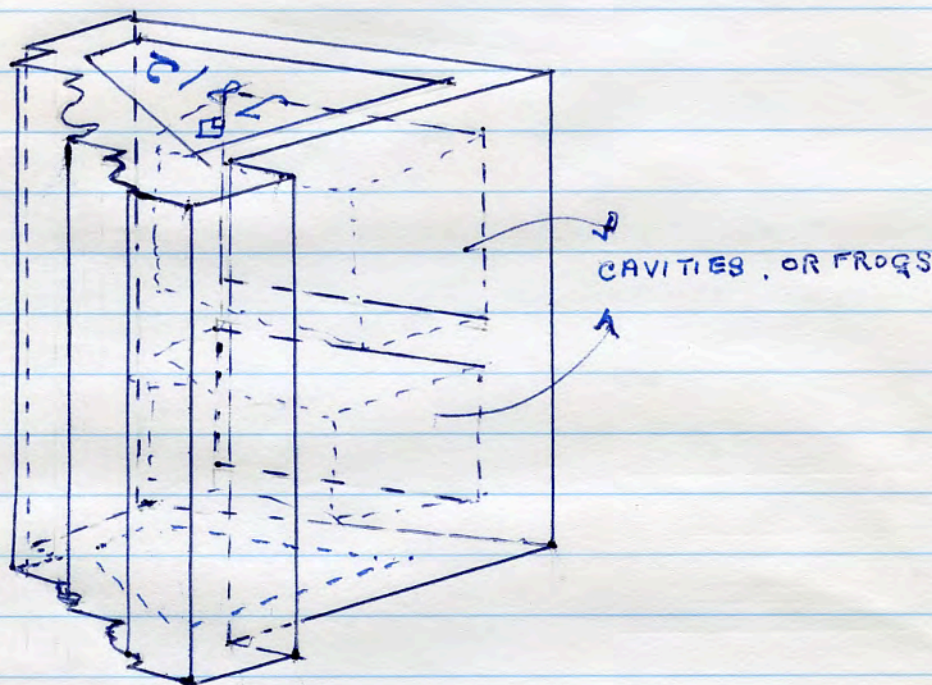 CAVITIES, OR FROGS